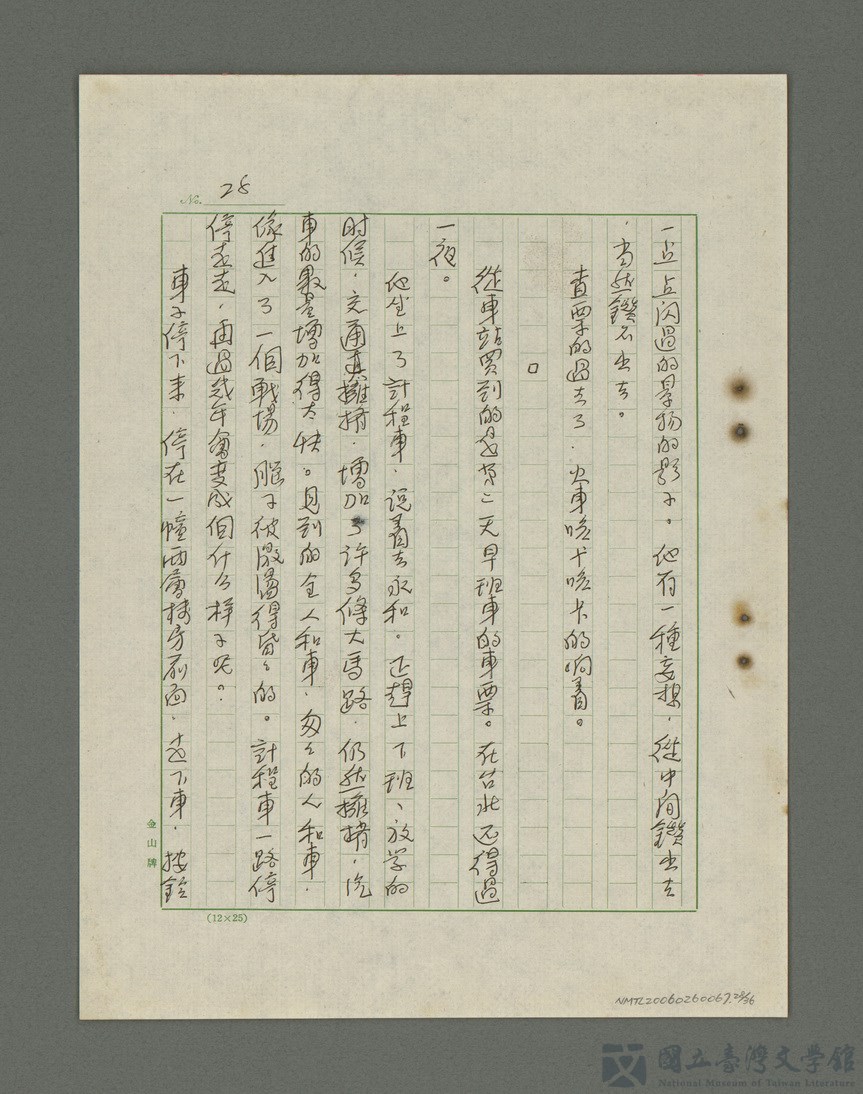 No. 28
一点点闪過的景物的影子。他有一種妄想，從中間鑽出去
，当然鑽不出去。
查票的過去了，火車喀卡喀卡的响着。
□
從車站買到的是第二天早班車的車票。在台北还得過
一夜。
他坐上了計程車，説着去永和。正趕上下班、放学的
时候，交通真擁擠，增加了許多條大馬路，仍然擁擠，汽
車的數量增加得太快。見到的全人和車，匆匆的人和車，
像進入了一個戰場，腦子被激盪得昏昏的。計程車一路停
停走走，再過幾年會变成個什么样子呢。
車子停下来，停在一幢两層楼房前面，走下車，按鈴
金山牌
(12×25)
NMTL20060260067.28/36
國立臺灣文學館
National Museum of Taiwan Literature